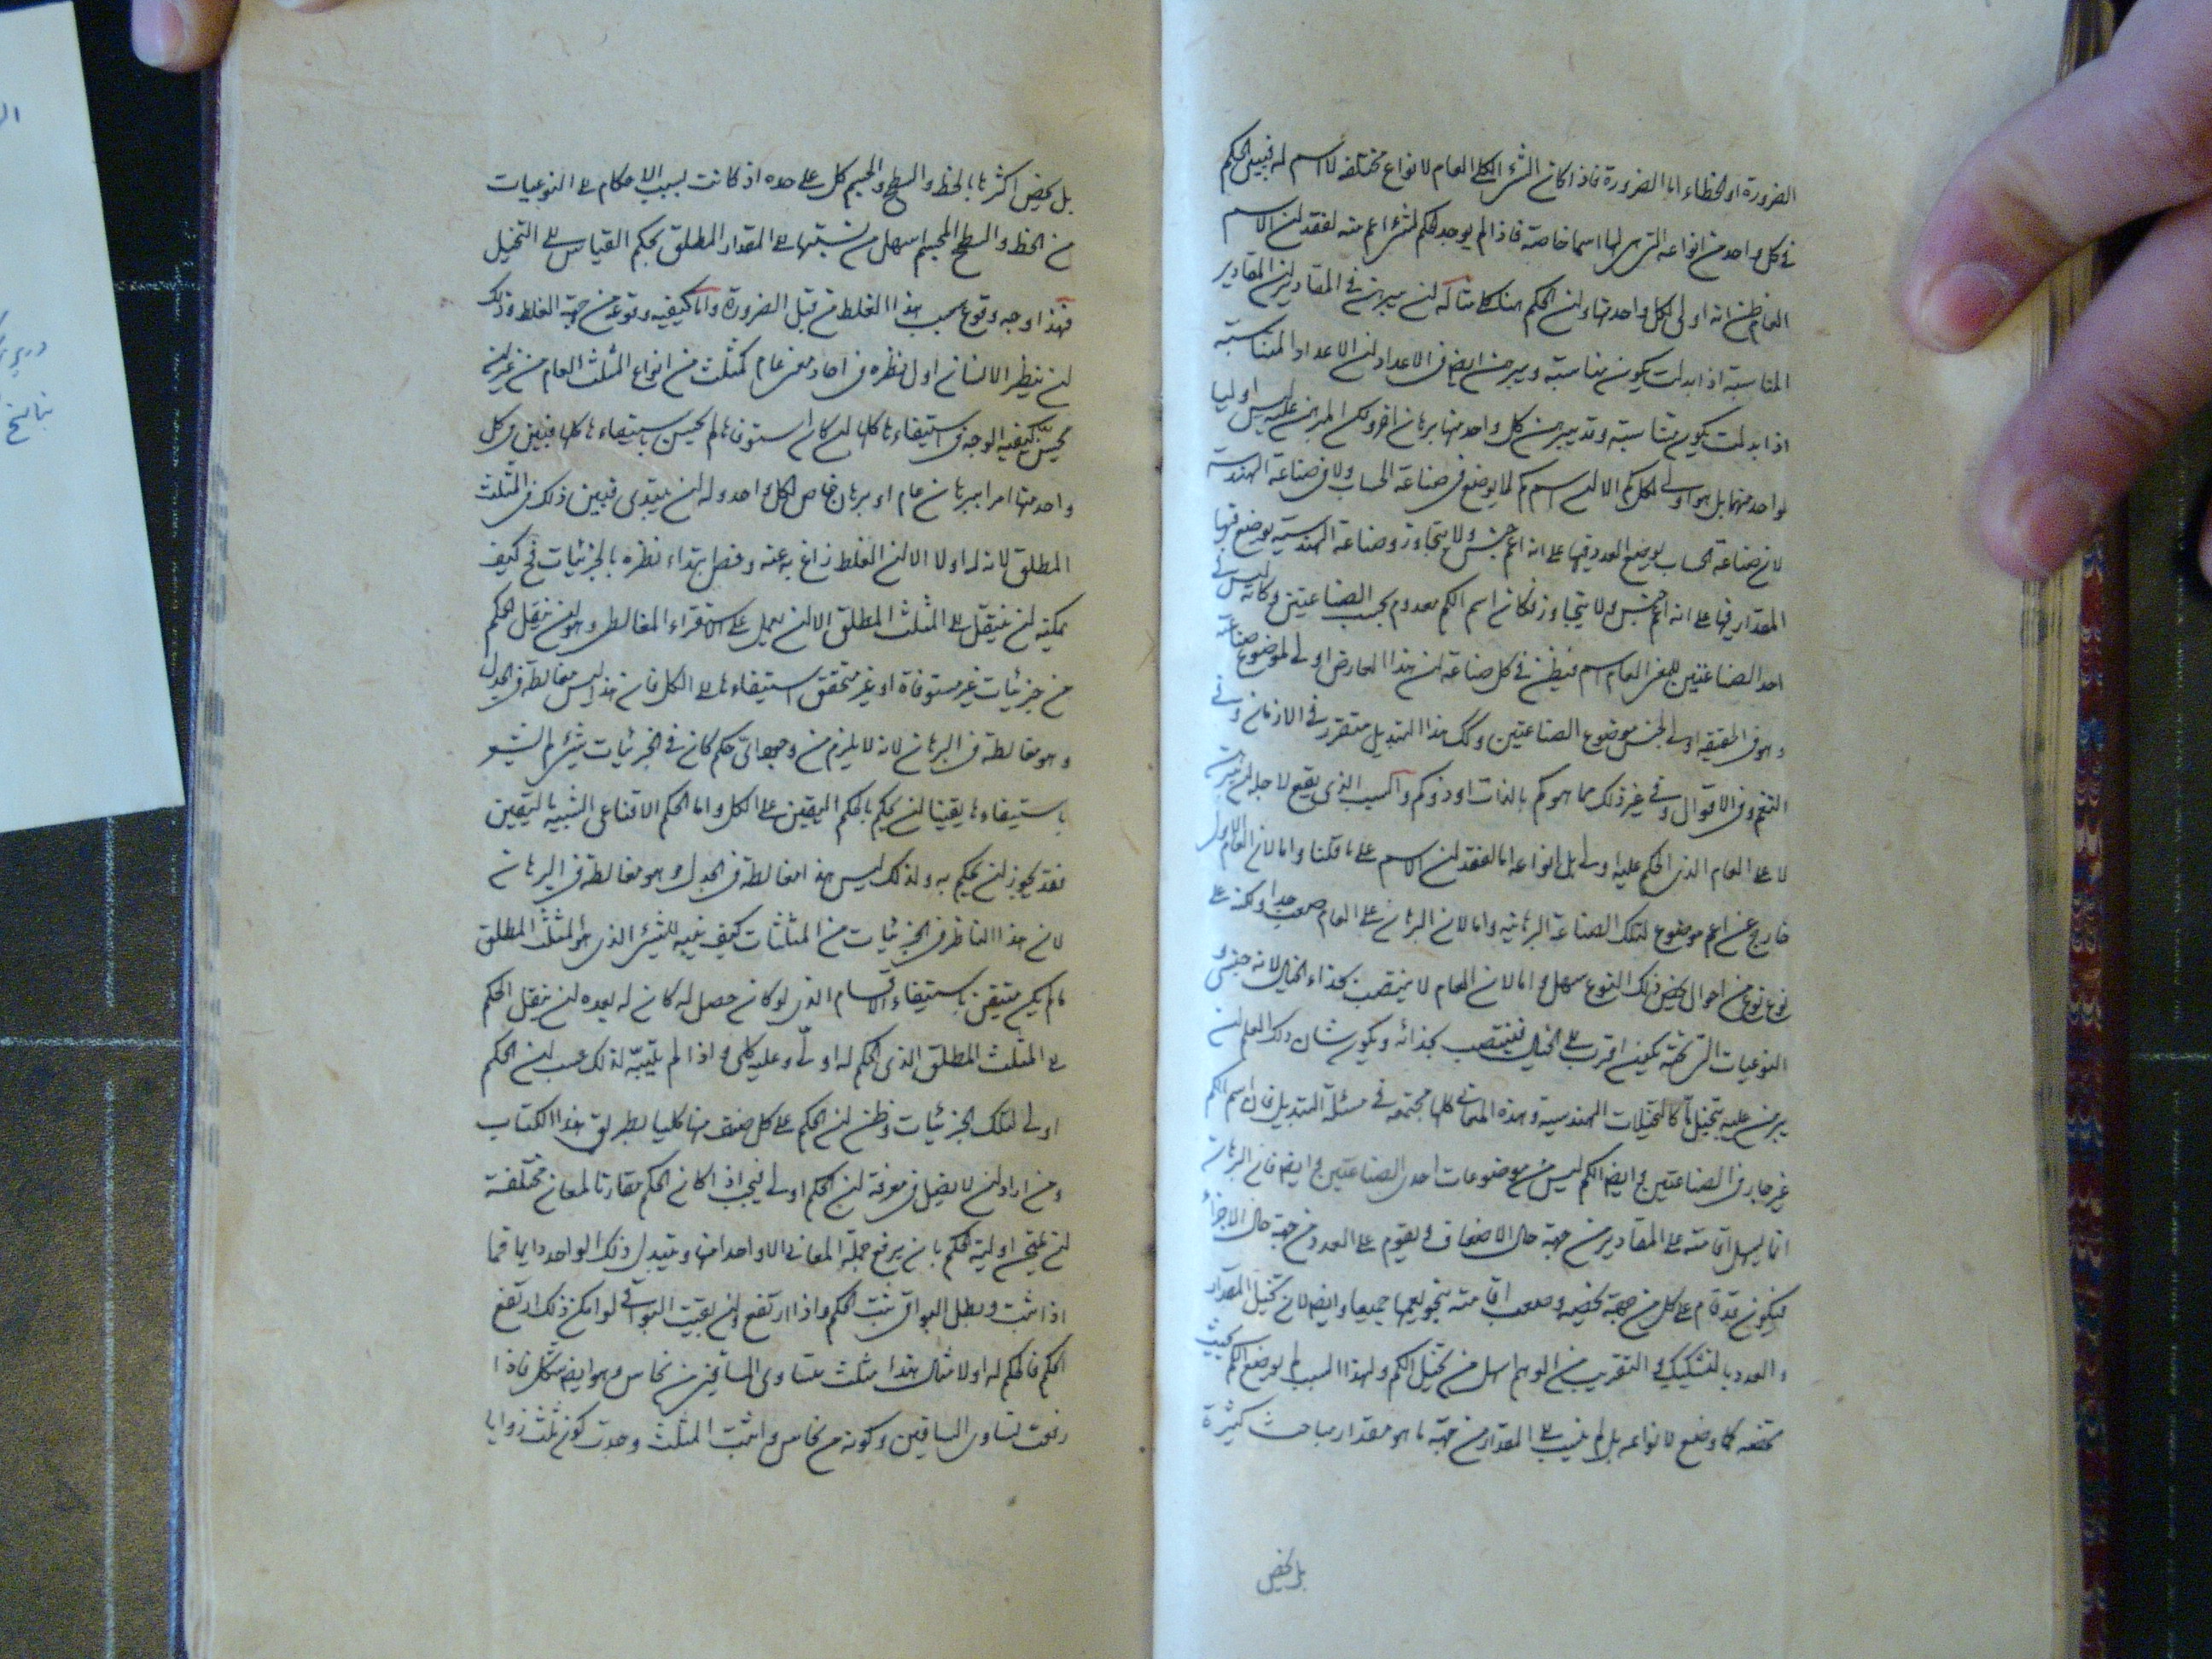 الضرورة او الخطاء اما الضرورة فاذا كان الشئ الكلى العام لانواع مختلفة لا اسم له فيبين الحكم
فى كل واحد من انواعه التى لها اسما خاصة فاذا لم يوجد الحكم لشئ اعم منه لفقدان الاسم
العام ظن انه اولى لكل واحد منها وان الحكم هناك كما مثاله ان يبرهن فى المقادير ان المقادير
المتناسبة اذا بدلت يكون متناسبة ويبرهن ايض فى الاعداد ان الاعداد المتناسبة
اذا بدلت يكون متناسبة وقد يبرهن كل واحد منها ببرهان اخر ولكن المبرهن عليه ليس اوليا
لواحد منهما بل هو اولى لكل كم الا ان اسم كم لما يوضع فى صناعة الحساب ولا فى صناعة الهندسة
لان صناعة الحساب يوضع العدد فيها على انه اعم جنس ولا يتجاوز وصناعة الهندسية يوضع فيها
المقدار فيها على انه اعم جنس ولا يتجاوز فكان اسم الكم معدوم بحسب الصناعتين وكانه ليس فى
احد الصناعتين للمعنى العام اسم فيظن فى كل صناعة ان هذا العارض اولى لموضوع صناعته
وهو فى الحقيقة اولى لجنس موضوع الصناعتين وكك هذا التبديل متقرر فى الازمان وفى
النغم وفى الاقوال وفى غير ذلك مما هو كم بالذات او ذو كم والسبب الذى يقع لاجله ان يبرهن
لا على العام الذى الحكم عليه اولى بل انواعه اما لفقدان الاسم على ما قلنا واما لان العام الاول
خارج عن اعم موضوع لتلك الصناعة البرهانية واما لان البرهان على العام صعب جدا ولكنه على
نوع نوع من احوال يخص ذلك النوع سهل واما لان العام لا ينتصب بحذاء الخيال لانه جنسى و
النوعيات التى تحته يكون اقرب على الخيال فينتصب بحذائه ويكون شان ذلك العلم ان
يبرهن عليه بتخيل ما كالتخيلات الهندسية وهذه المعانى كلها مجتمعة فى مسئلة التبديل فان اسم الكم
غير جار فى الصناعتين و ايضا الكم ليس من موضوعات احدى الصناعتين و ايضم فان البرهان
انما يسهل اقامته على المقادير من جهة حال الاضعاف و يقوم على العدد من جهة حال الاجزاء
فيكون قد قام على كل من جهة تخصه وصعب اقامته بنحو يعمها جميعا وايضم لان تخيل المقدار
والعدد بالتشكيك و التقريب من الوهم اسهل من تخيل الكم ولهذا السبب لم يوضع الكم بحيث
تحته كما وضع لانواعه بل لم ينسب على المقدار من جهة ما هو مقدار مباحث كثيرة
بل يخص
بل يخص اكثرها بالخط والسطح والجسم كل على حده اذ كانت نسبت الاحكام على النوعيات
من الخط والسطح والجسم اسهل من نسبتها على المقدار المطلق بحكم القياس على التخيل
فهذا وجه وقوع بحسب هذا الغلط من قبل الضرورة واما كيفية وقوعه من جهة الغلط وذلك
ان ينظر الانسان اول نظره فى احاد معنى عام كمثلث من انواع المثلث العام من غير ان
يحسن كيفية الوجه فى استيفاءها كلها ان كان استوفاها لم يحسن باستيفاءها كلها فيبين فى كل
واحد منها امرا ببرهان عام او برهان خاص لكل واحد وله ان يبتدى فيبين ذلك فى المثلث
المطلق لانه له اولا الا ان الغلط زاغ به عنه وخص ابتداء نظره بالجزئيات فح كيف
يمكنه ان ينتقل على المثلث المطلق الا ان يعمل على الاستقراء المغالطى وهو ان ينقل الحكم
من جزئيات غير مستوفاة او غير متحقق استيفاءها على الكل فان هذا ليس مغالطة فى الجدل
وهو مغالطة فى البرهان لانه لا يلزم من وجود اى حكم كان فى الجزئيات شئ لم
باستيفاءها يقينا ان يحكم بالحكم اليقين على الكل واما الحكم الاقناعى الشبيه باليقين
فقد يجوز ان يحكم به ولذلك ليس هذا مغالطة فى الجدل وهو مغالطة فى البرهان
لان هذا الناظر فى الجزئيات من المثلثات كيف ينبه للشئ الذى هو المثلث المطلق
ما لم يكن متيقن باستيفاء الاقسام الذى لو كان حصل له كان له بعده ان ينقل الحكم
على المثلث المطلق الذى الحكم له اولى وعليه كلى و اذا لم يتنبه لذلك حسب ان الحكم
اولى لتلك الجزئيات وظن ان الحكم على كل صنف منها كليا بطريق هذا الكتاب
ومن اراد ان لا يضل فى معرفة ان الحكم اولى فيجب اذا كان الحكم مقارنا لمعان مختلفة
ان يمتحن اولية الحكم بان يرفع جملة المعانى الا واحدا منها ويتبدل ذلك الواحد دايما فما
اذا ثبت وبطل البواقى ثبت الحكم واذا ارتفع وان بقيت البواقى لو امكن ذلك ارتفع
الحكم فالحكم له اولا مثال هذا مثلث متساوى الساقين من نحاس وهو ايضم شكل فاذا
رفعت تساوى الساقين وكونه من نحاس و اثبت المثلث وجدت كون ثلث زوايا